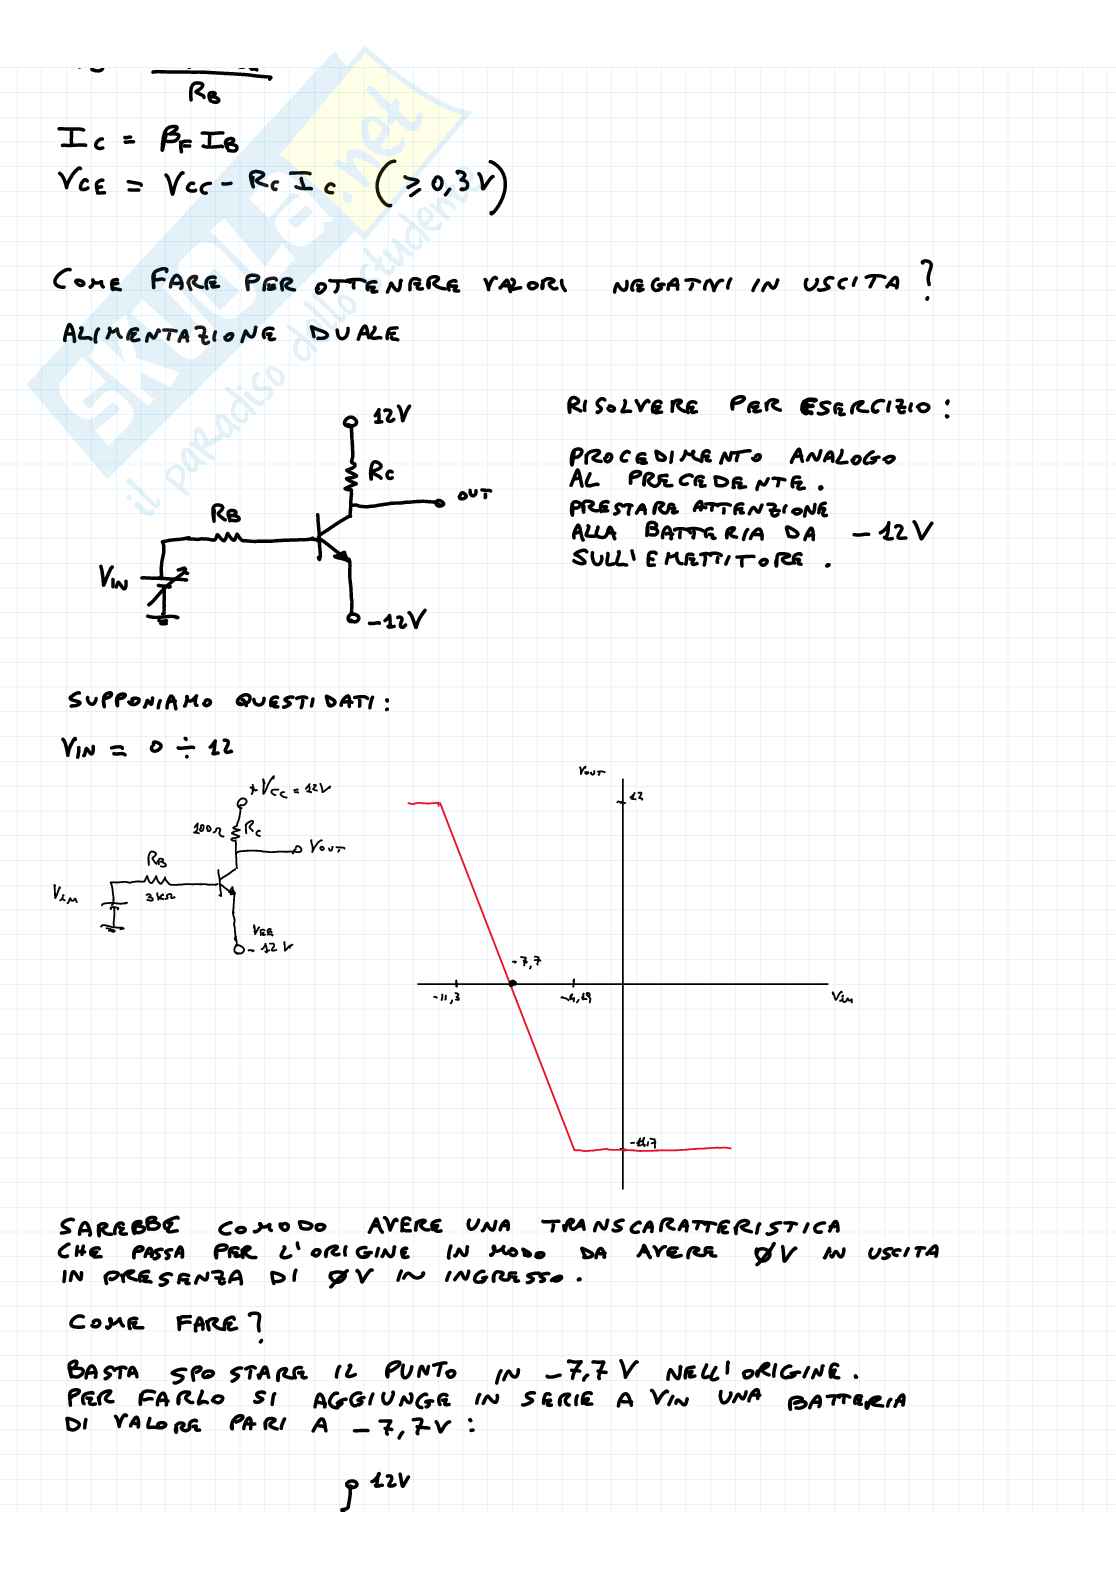 R_B
I_C = β_F I_B
V_CE = V_CC - R_C I_C (≥ 0,3 V)
COME FARE PER OTTENERE VALORI NEGATIVI IN USCITA ?
ALIMENTAZIONE DUALE
SKUOLA.net
il paradiso dello studente
12V
R_C
OUT
R_B
V_IN
-12V
RISOLVERE PER ESERCIZIO :
PROCEDIMENTO ANALOGO
AL PRECEDENTE .
PRESTARE ATTENZIONE
ALLA BATTERIA DA -12V
SULL'EMETTITORE .
SUPPONIAMO QUESTI DATI :
V_IN = 0 ÷ 12
+V_CC = 12V
100Ω R_C
V_OUT
R_B
3 kΩ
V_IN
V_EE
-12V
V_OUT
12
-7,7
-11,3
-4,19
V_IN
-11,7
SAREBBE COMODO AVERE UNA TRANSCARATTERISTICA
CHE PASSA PER L'ORIGINE IN MODO DA AVERE ØV IN USCITA
IN PRESENZA DI ØV IN INGRESSO .
COME FARE ?
BASTA SPOSTARE IL PUNTO IN -7,7 V NELL'ORIGINE .
PER FARLO SI AGGIUNGE IN SERIE A VIN UNA BATTERIA
DI VALORE PARI A -7,7V :
12V